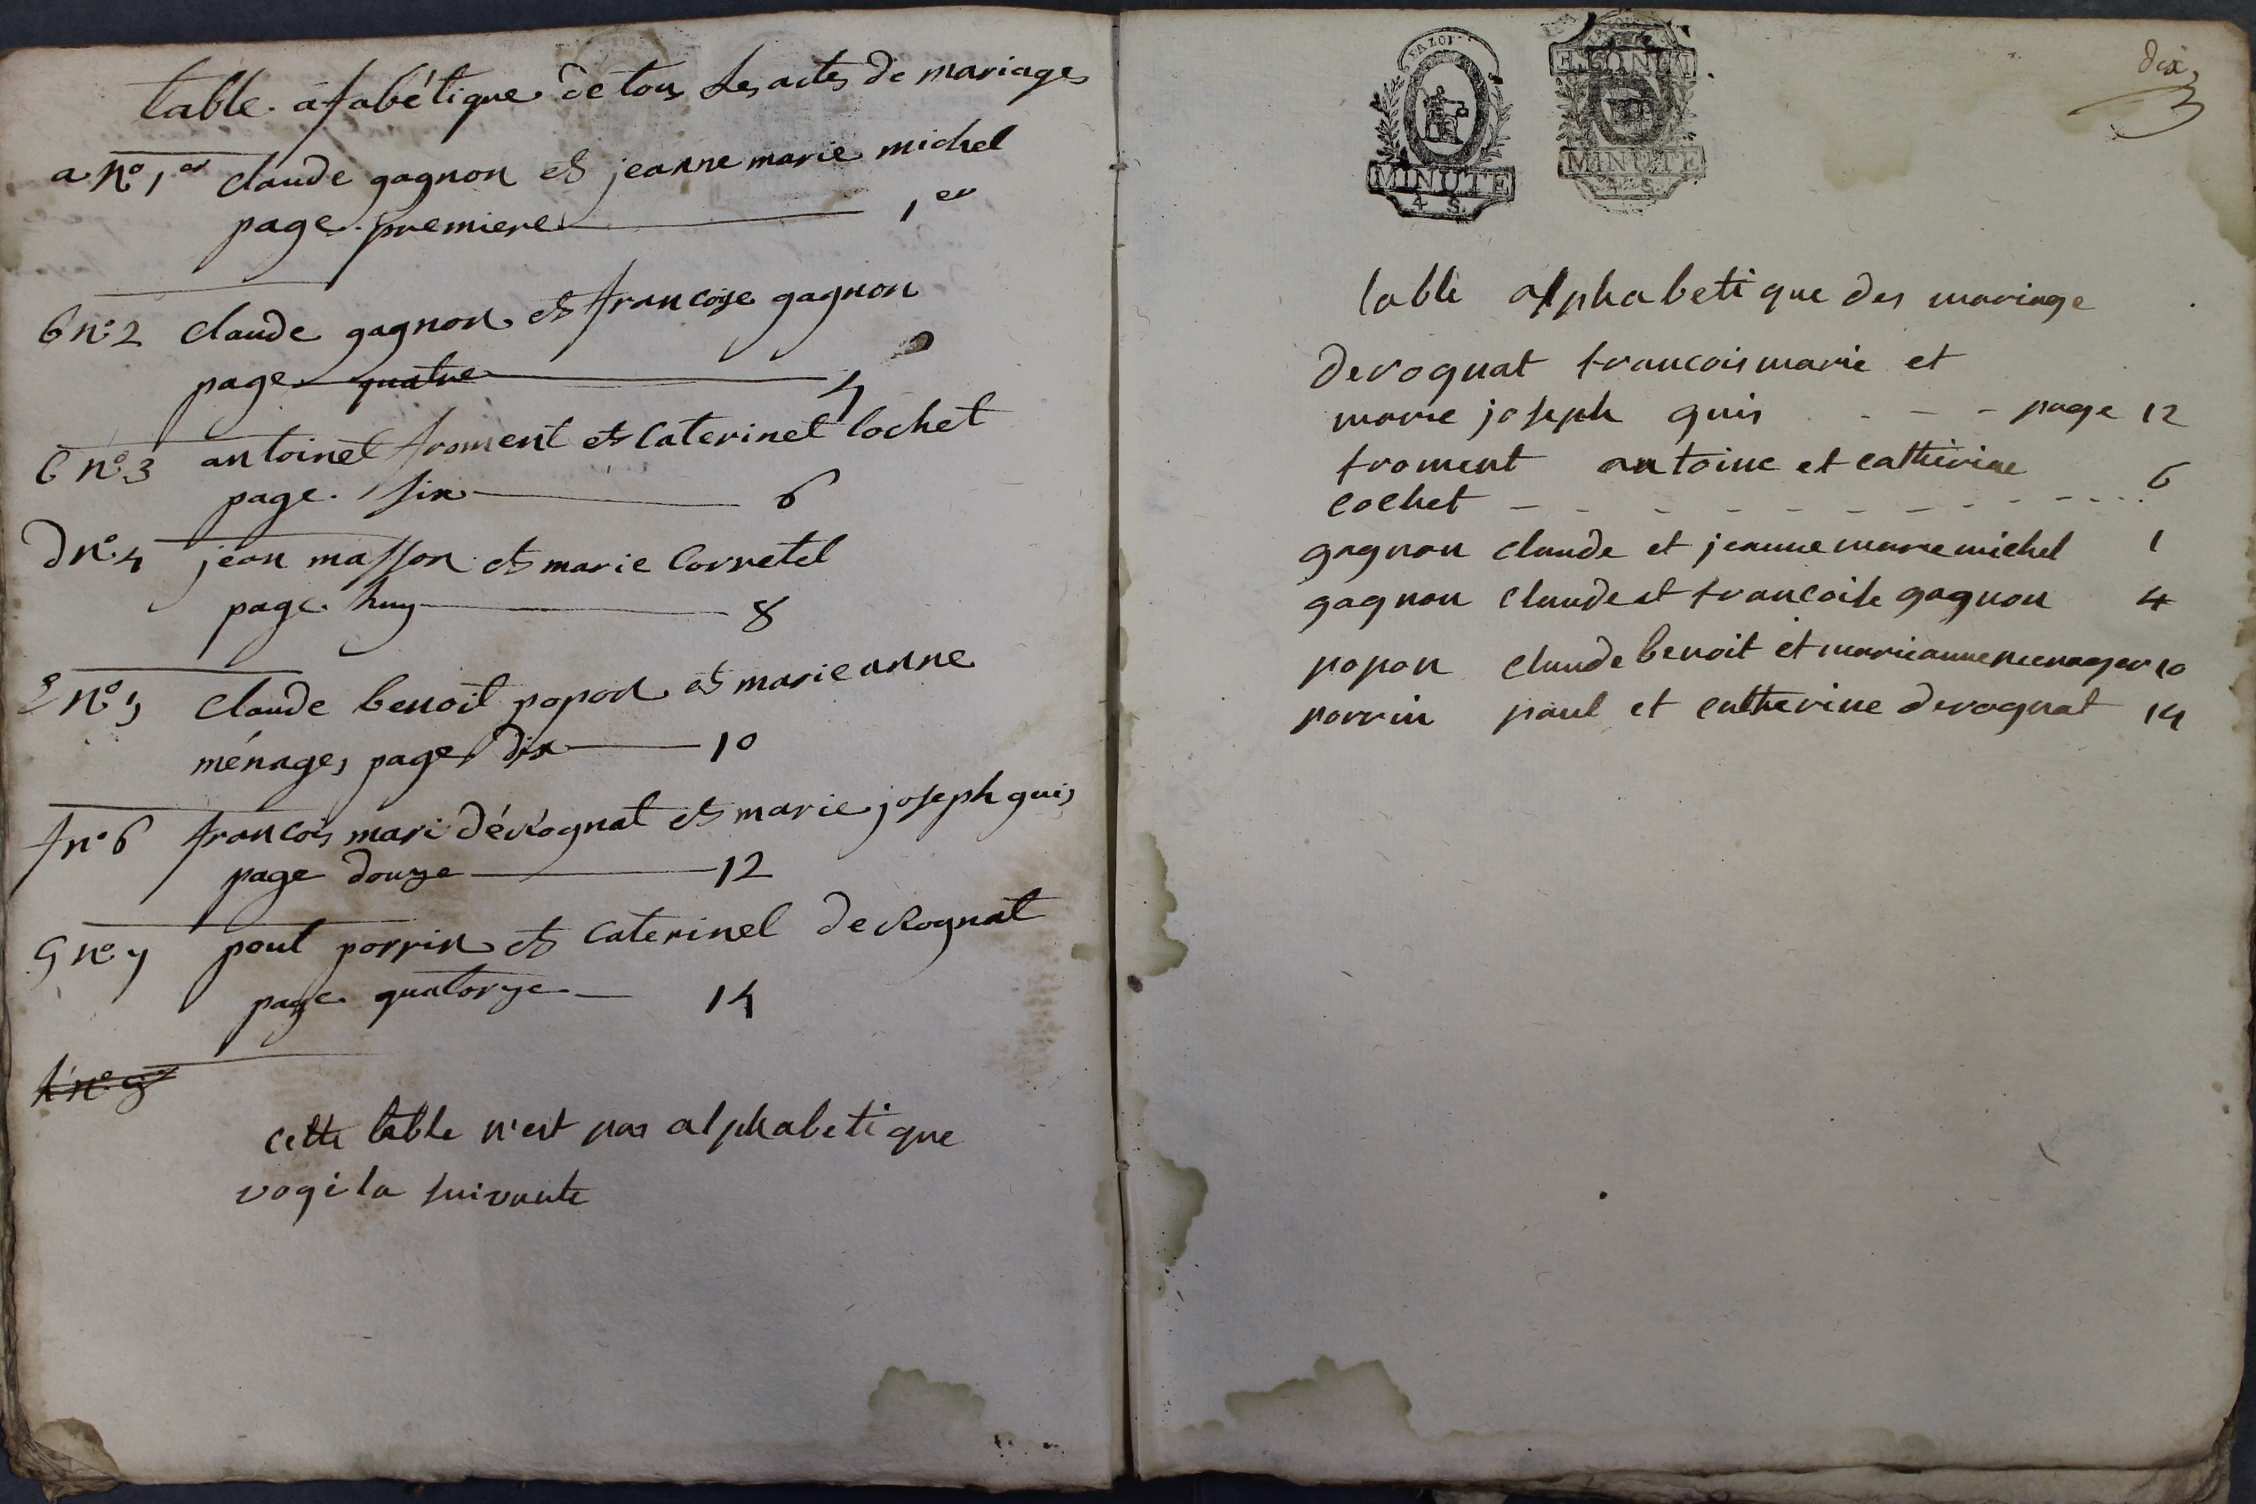 table afabétique de tous les actes de mariages
a n.o 1er claude gagnon et jeanne marie michel
page premiere 1er
b n.o 2 claude gagnon et francoise gagnon
page quatre 4
c n.o 3 antoinet froment et Caterinet Cochet
page six 6
d n.o 4 jean masson et marie Corretel
page huy 8
e n.o 5 claude benoit popon et marie anne
ménages page dix 10
f n.o 6 francois mari déRognat et marie joseph guis
page douze 12
g n.o 7 poul porrin et Caterinet deRognat
page quatorze 14
cette table n'est pas alphabetique
voyé la suivante
dix
MINUTE
4 S.
MINUTE
table alphabetique des mariage
derognat francois marie et
marie joseph guis - - - page 12
froment antoine et catherine
cochet - - - - - - - - - - 6
gagnon claude et jeanne marie michel 1
gagnon claude et francoise gagnon 4
popon claude benoit et marieanne menager 10
porrin paul et catherine derognat 14